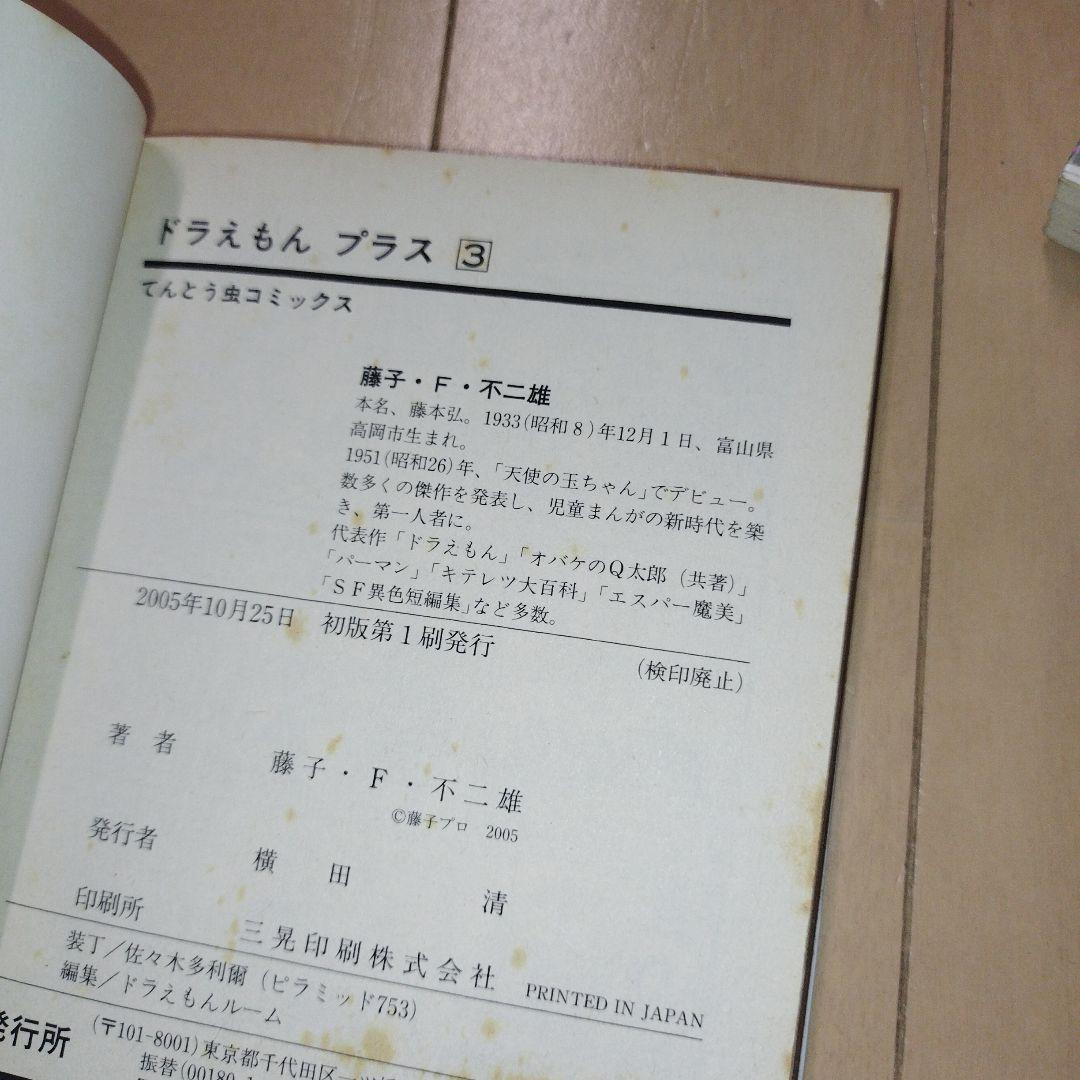 ドラえもん プラス 3
てんとう虫コミックス
藤子・F・不二雄
本名、藤本弘。1933(昭和8)年12月1日、富山県
高岡市生まれ。
1951(昭和26)年、「天使の玉ちゃん」でデビュー。
数多くの傑作を発表し、児童まんがの新時代を築
き、第一人者に。
代表作「ドラえもん」「オバケのQ太郎(共著)」
「パーマン」「キテレツ大百科」「エスパー魔美」
「SF異色短編集」など多数。
2005年10月25日 初版第1刷発行
(検印廃止)
著者 藤子・F・不二雄
©藤子プロ 2005
発行者 横田 清
印刷所 三晃印刷株式会社
PRINTED IN JAPAN
装丁/佐々木多利爾(ピラミッド753)
編集/ドラえもんルーム
発行所 (〒101-8001)東京都千代田区一ツ橋
振替(00180-1